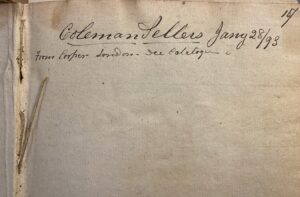 Coleman Sellers Jany 28/93
From Cooper London - See Catalogue